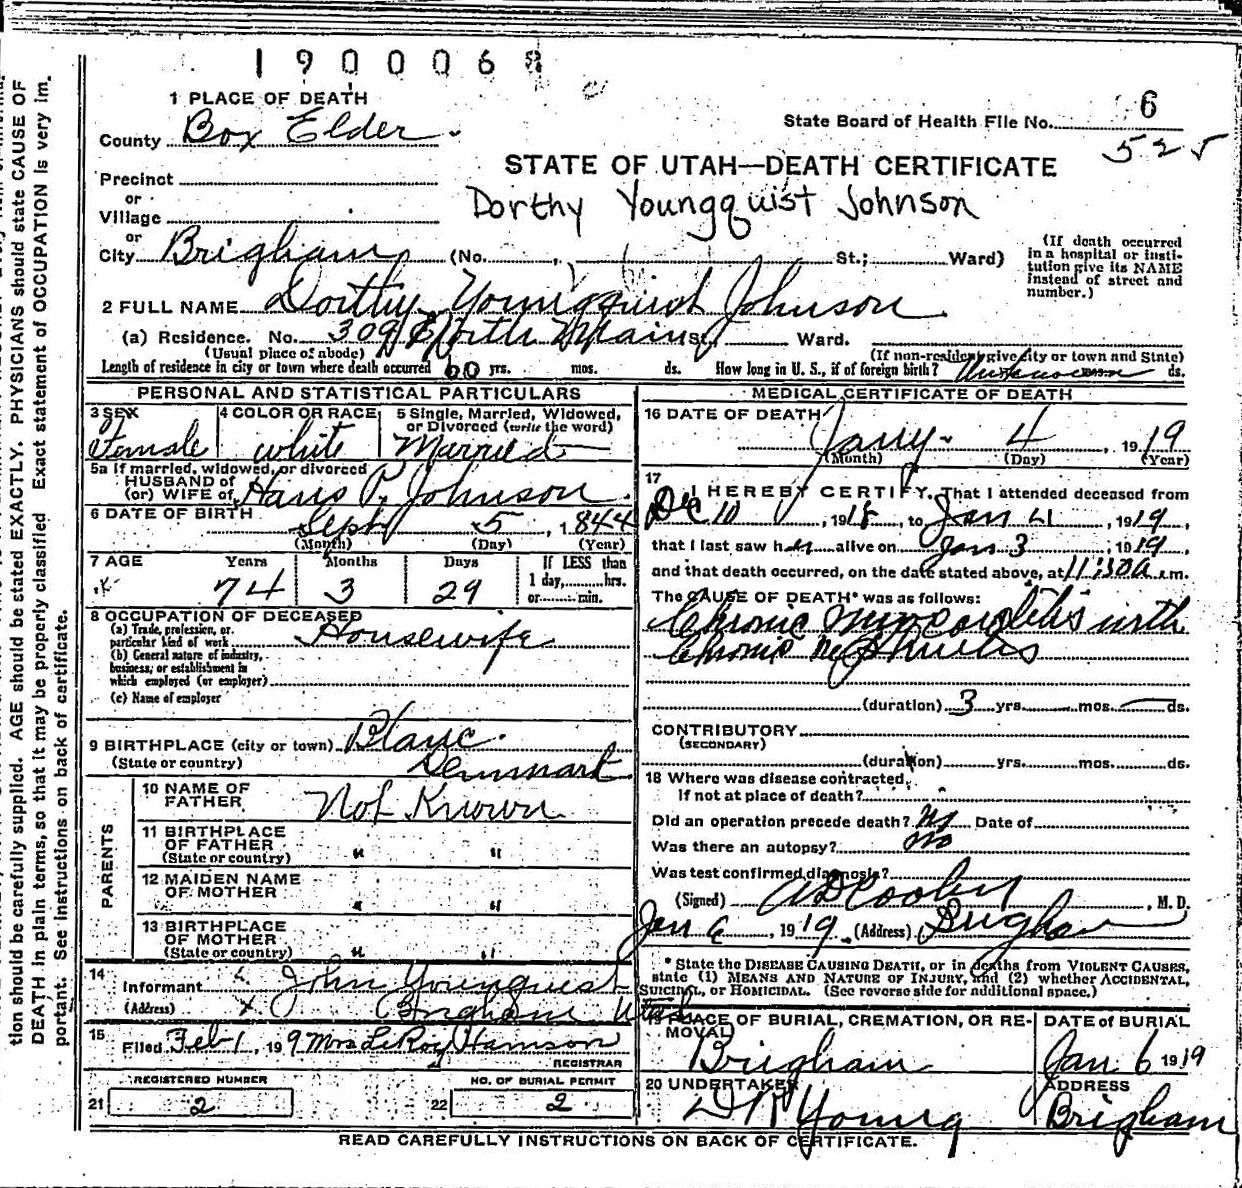 1900068
1 PLACE OF DEATH
County Box Elder
State Board of Health File No. 6
525
STATE OF UTAH—DEATH CERTIFICATE
Precinct
or
Village
Dorthy Youngquist Johnson
or
City Brigham (No. St.; Ward)
(If death occurred in a hospital or insti-
tution give its NAME instead of street and number.)
2 FULL NAME Dorthy Youngquist Johnson
(a) Residence. No. 309 North Main St., Ward.
(Usual place of abode) (If non-resident give city or town and State)
Length of residence in city or town where death occurred 60 yrs. mos. ds. How long in U. S., if of foreign birth? Unknown ds.
PERSONAL AND STATISTICAL PARTICULARS
3 SEX Female
4 COLOR OR RACE white
5 Single, Married, Widowed, or Divorced (write the word) Married
5a If married, widowed, or divorced
HUSBAND of
(or) WIFE of Hans P. Johnson
6 DATE OF BIRTH Sept 5, 1844
(Month) (Day) (Year)
7 AGE Years Months Days If LESS than
74 3 29 1 day, hrs.
or min.
8 OCCUPATION OF DECEASED
(a) Trade, profession, or particular kind of work Housewife
(b) General nature of industry,
business, or establishment in
which employed (or employer)
(c) Name of employer
9 BIRTHPLACE (city or town)
(State or country) Denmark
PARENTS
10 NAME OF FATHER Not Known
11 BIRTHPLACE OF FATHER (State or country) " "
12 MAIDEN NAME OF MOTHER " "
13 BIRTHPLACE OF MOTHER (State or country) " "
14 Informant John Youngquist
(Address) Brigham Utah
15 Filed Feb 1, 19 9 Mrs LeRoy Hamson
REGISTRAR
REGISTERED NUMBER
21 2
NO. OF BURIAL PERMIT
22 2
MEDICAL CERTIFICATE OF DEATH
16 DATE OF DEATH
Jany 4 1919
(Month) (Day) (Year)
17
I HEREBY CERTIFY, That I attended deceased from
Dec 10, 1918, to Jan 4, 1919,
that I last saw her alive on Jan 3, 1919,
and that death occurred, on the date stated above, at 11:30 a.m.
The CAUSE OF DEATH* was as follows:
Chronic Myocarditis with
Chronic Nephritis
(duration) 3 yrs. mos. ds.
CONTRIBUTORY
(SECONDARY)
(duration) yrs. mos. ds.
18 Where was disease contracted,
If not at place of death?
Did an operation precede death? No Date of
Was there an autopsy? No
Was test confirmed diagnosis?
(Signed) A D Cooley, M. D.
Jan 6, 1919. (Address) Brigham
* State the DISEASE CAUSING DEATH, or in deaths from VIOLENT CAUSES,
state (1) MEANS AND NATURE OF INJURY, and (2) whether ACCIDENTAL,
SUICIDAL, OR HOMICIDAL. (See reverse side for additional space.)
19 PLACE OF BURIAL, CREMATION, OR RE-
MOVAL
Brigham
DATE of BURIAL
Jan 6 1919
20 UNDERTAKER
Young
ADDRESS
Brigham
READ CAREFULLY INSTRUCTIONS ON BACK OF CERTIFICATE.
tion should be carefully supplied. AGE should be stated EXACTLY. PHYSICIANS should state CAUSE OF
DEATH in plain terms, so that it may be properly classified. Exact statement of OCCUPATION is very im-
portant. See instructions on back of certificate.